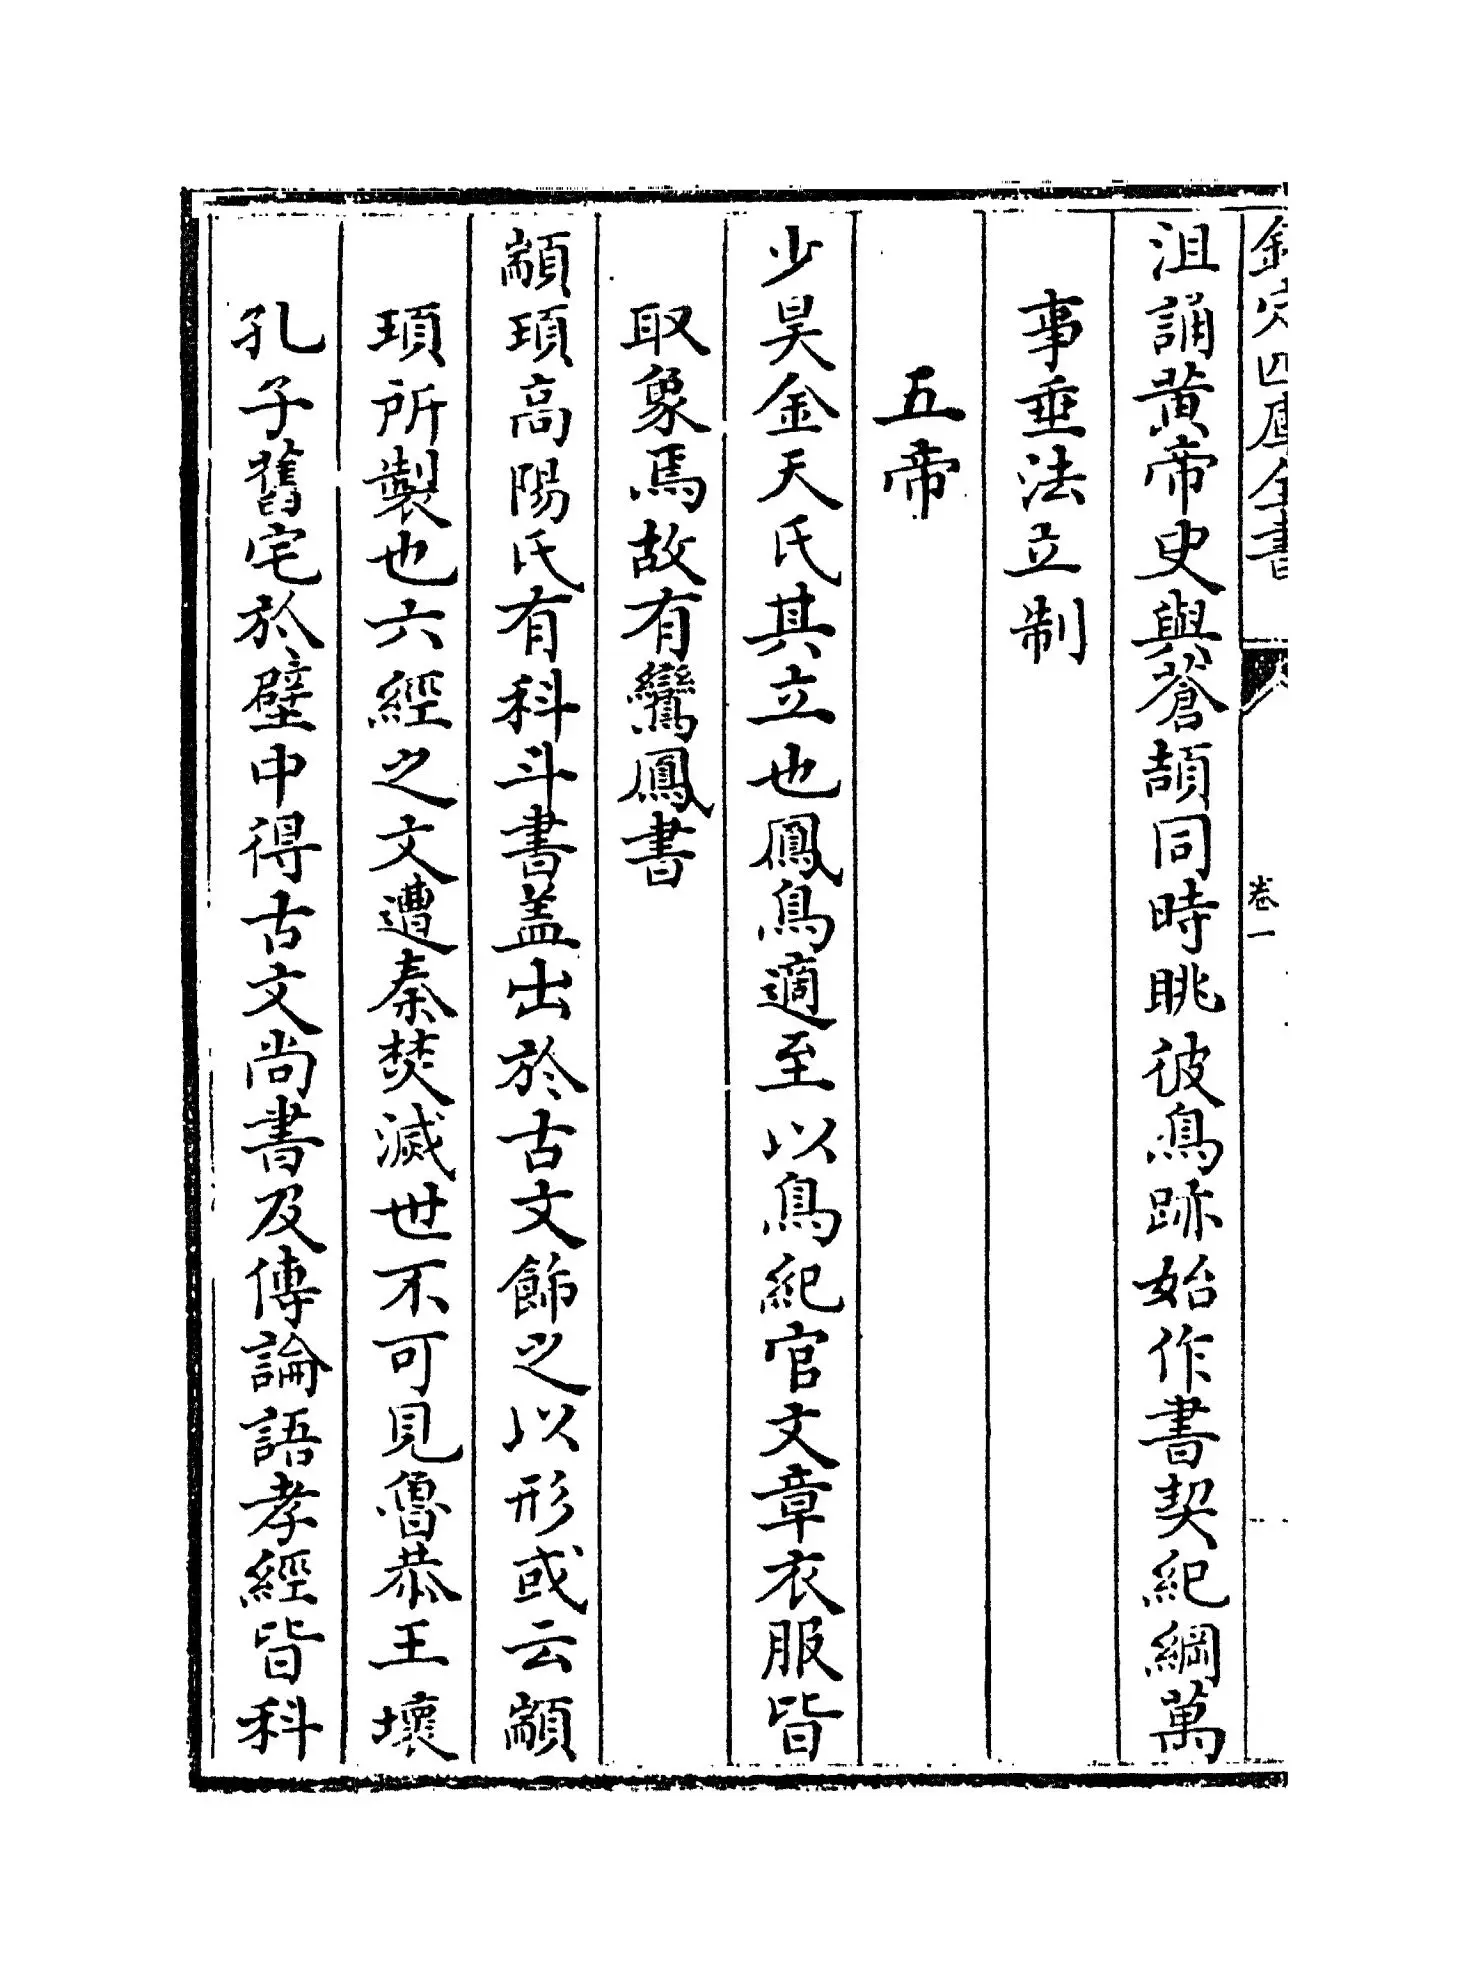 欽定四庫全書
卷一
沮誦黃帝史與蒼頡同時眺彼鳥跡始作書契紀綱萬
事垂法立制
五帝
少昊金天氏其立也鳳鳥適至以鳥紀官文章衣服皆
取象焉故有鸞鳳書
顓頊高陽氏有科斗書盖出於古文飾之以形或云顓
頊所製也六經之文遭秦焚滅世不可見魯恭王壞
孔子舊宅於壁中得古文尚書及傳論語孝經皆科